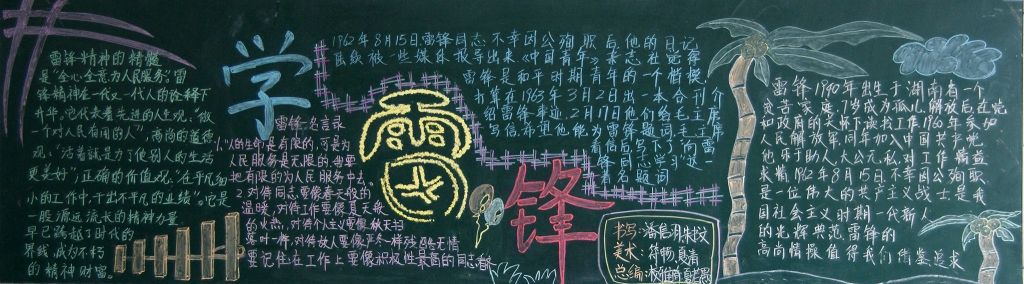 雷锋精神的精髓
是"全心全意为人民服务;雷
锋精神在一代又一代人的诠释下
升华,它代表着先进的人生观,"做
一个对人民有用的人";高尚的道德
观:"活着就是为了他别人的生活
更美好";正确的价值观:"在平凡
小的工作中,干出不平凡的业绩"。它是
一股源远流长的精神力量
早已跨越了时代的
界线,成为不朽
的精神财富。
学
雷锋
雷锋名言录
1.人的生命是有限的,可是为
人民服务是无限的,我要
把有限的为人民服务中去。
2.对待同志要像春天般的
温暖,对待工作要像夏天般
的火热,对待个人主义要像秋天扫
落叶一样,对待敌人要像严冬一样残酷无情
要记住:在工作上要像积极性最高的同志看齐
1962年8月15日,雷锋同志不幸因公殉职后他的日记
陆续被一些媒体报导出来《中国青年》杂志社觉得
雷锋是和平时期青年的一个楷模,
打算在1963年3月2日出一本合刊介
绍雷锋事迹2月17日他们给毛主席
写信希望他能为雷锋题词毛主席
看信后写下了"向雷
锋同志学习"这一
著名题词
书写:
美术:
总编:
雷锋,1940年出生于湖南省一个
贫苦家庭,7岁成为孤儿,解放后在党
和政府的关怀下读书工作,1960年参加
人民解放军,同年加入中国共产党,
他乐于助人,大公无私,对工作精益
求精,1962年8月15日不幸因公殉职
是一位伟大的共产主义战士,是我
国社会主义时期一代新人
的光辉典范,雷锋的
高尚情操值得我们借鉴追求